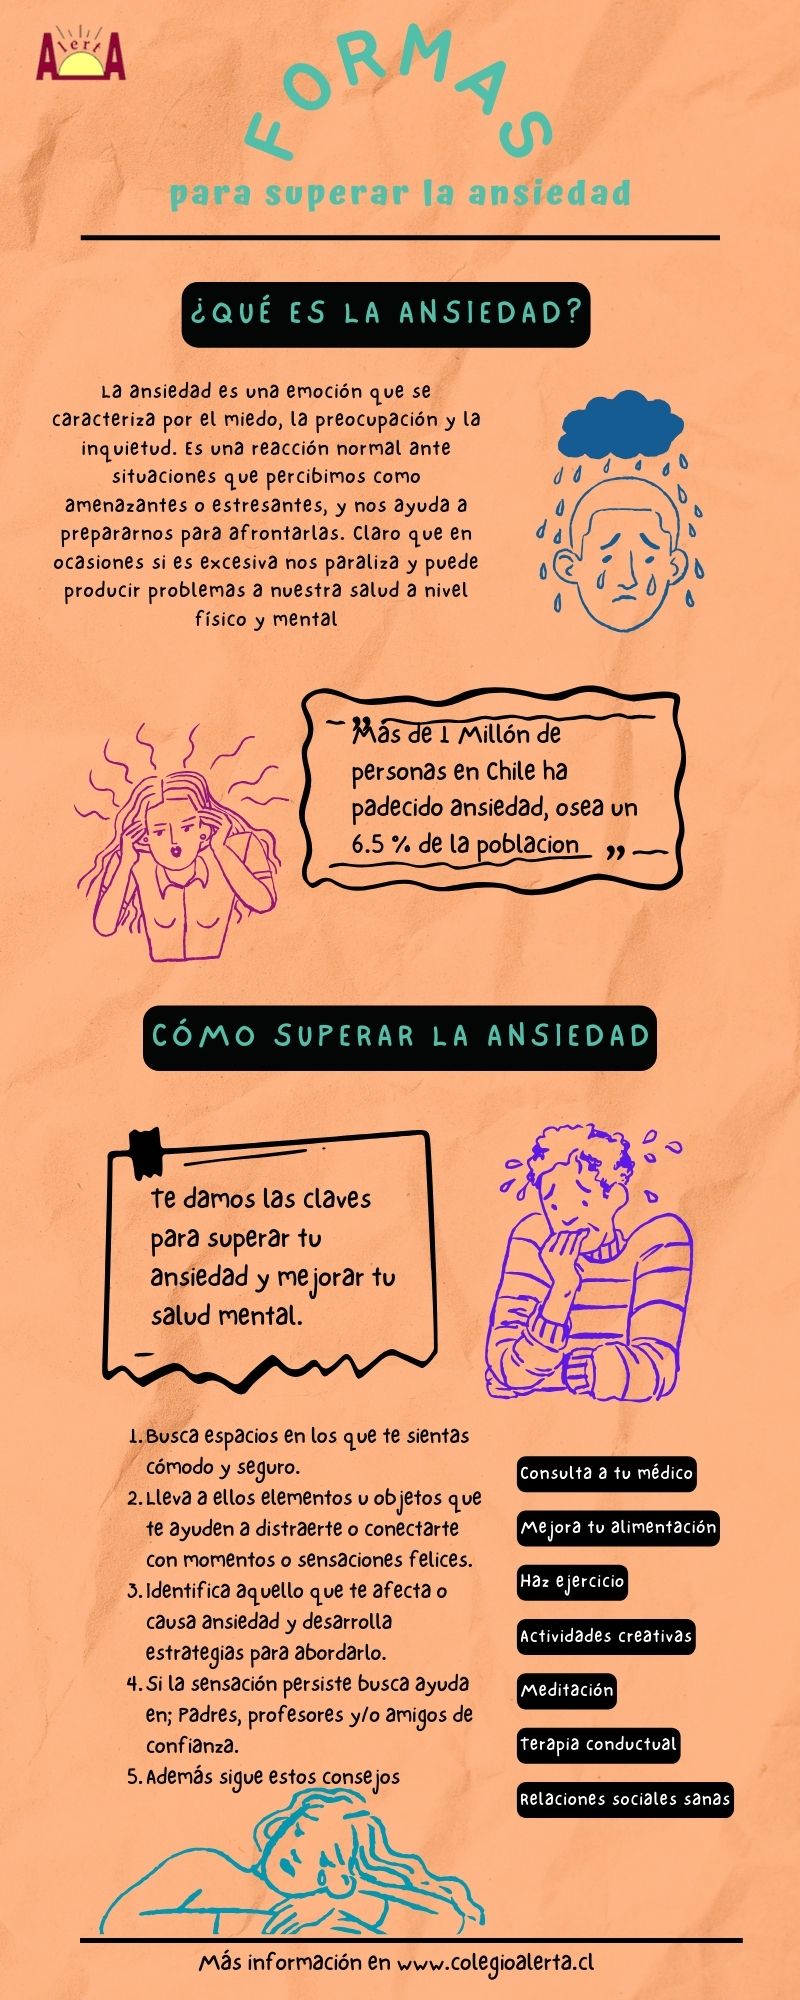 AlertA
FORMAS
para superar la ansiedad
¿QUÉ ES LA ANSIEDAD?
La ansiedad es una emoción que se
caracteriza por el miedo, la preocupación y la
inquietud. Es una reacción normal ante
situaciones que percibimos como
amenazantes o estresantes, y nos ayuda a
prepararnos para afrontarlas. Claro que en
ocasiones si es excesiva nos paraliza y puede
producir problemas a nuestra salud a nivel
físico y mental
Más de 1 Millón de
personas en Chile ha
padecido ansiedad, osea un
6.5 % de la poblacion
CÓMO SUPERAR LA ANSIEDAD
Te damos las claves
para superar tu
ansiedad y mejorar tu
salud mental.
1. Busca espacios en los que te sientas
cómodo y seguro.
2. Lleva a ellos elementos u objetos que
te ayuden a distraerte o conectarte
con momentos o sensaciones felices.
3. Identifica aquello que te afecta o
causa ansiedad y desarrolla
estrategias para abordarlo.
4. Si la sensación persiste busca ayuda
en; Padres, profesores y/o amigos de
confianza.
5. Además sigue estos consejos
Consulta a tu médico
Mejora tu alimentación
Haz ejercicio
Actividades creativas
Meditación
Terapia conductual
Relaciones sociales sanas
Más información en www.colegioalerta.cl